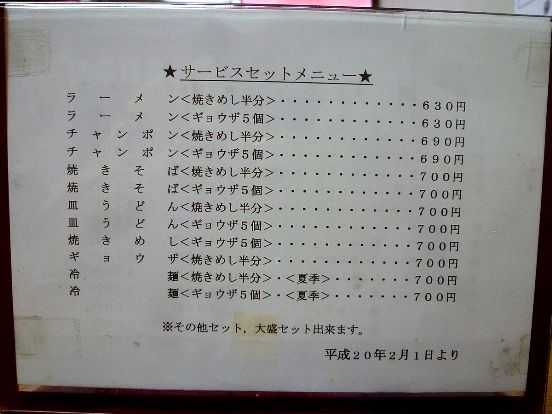 ★サービスセットメニュー★
ラーメン<焼きめし半分>・・・・・・・・・・・・・・630円
ラーメン<ギョウザ5個>・・・・・・・・・・・・・・630円
チャンポン<焼きめし半分>・・・・・・・・・・・・・・690円
チャンポン<ギョウザ5個>・・・・・・・・・・・・・・690円
焼きそば<焼きめし半分>・・・・・・・・・・・・・・700円
焼きそば<ギョウザ5個>・・・・・・・・・・・・・・700円
皿うどん<焼きめし半分>・・・・・・・・・・・・・・700円
皿うどん<ギョウザ5個>・・・・・・・・・・・・・・700円
焼きめし<ギョウザ5個>・・・・・・・・・・・・・・700円
ギョウザ<焼きめし半分>・・・・・・・・・・・・・・700円
冷麺<焼きめし半分>・<夏季>・・・・・・・700円
冷麺<ギョウザ5個>・<夏季>・・・・・・・700円
※その他セット,大盛セット出来ます。
平成20年2月1日より